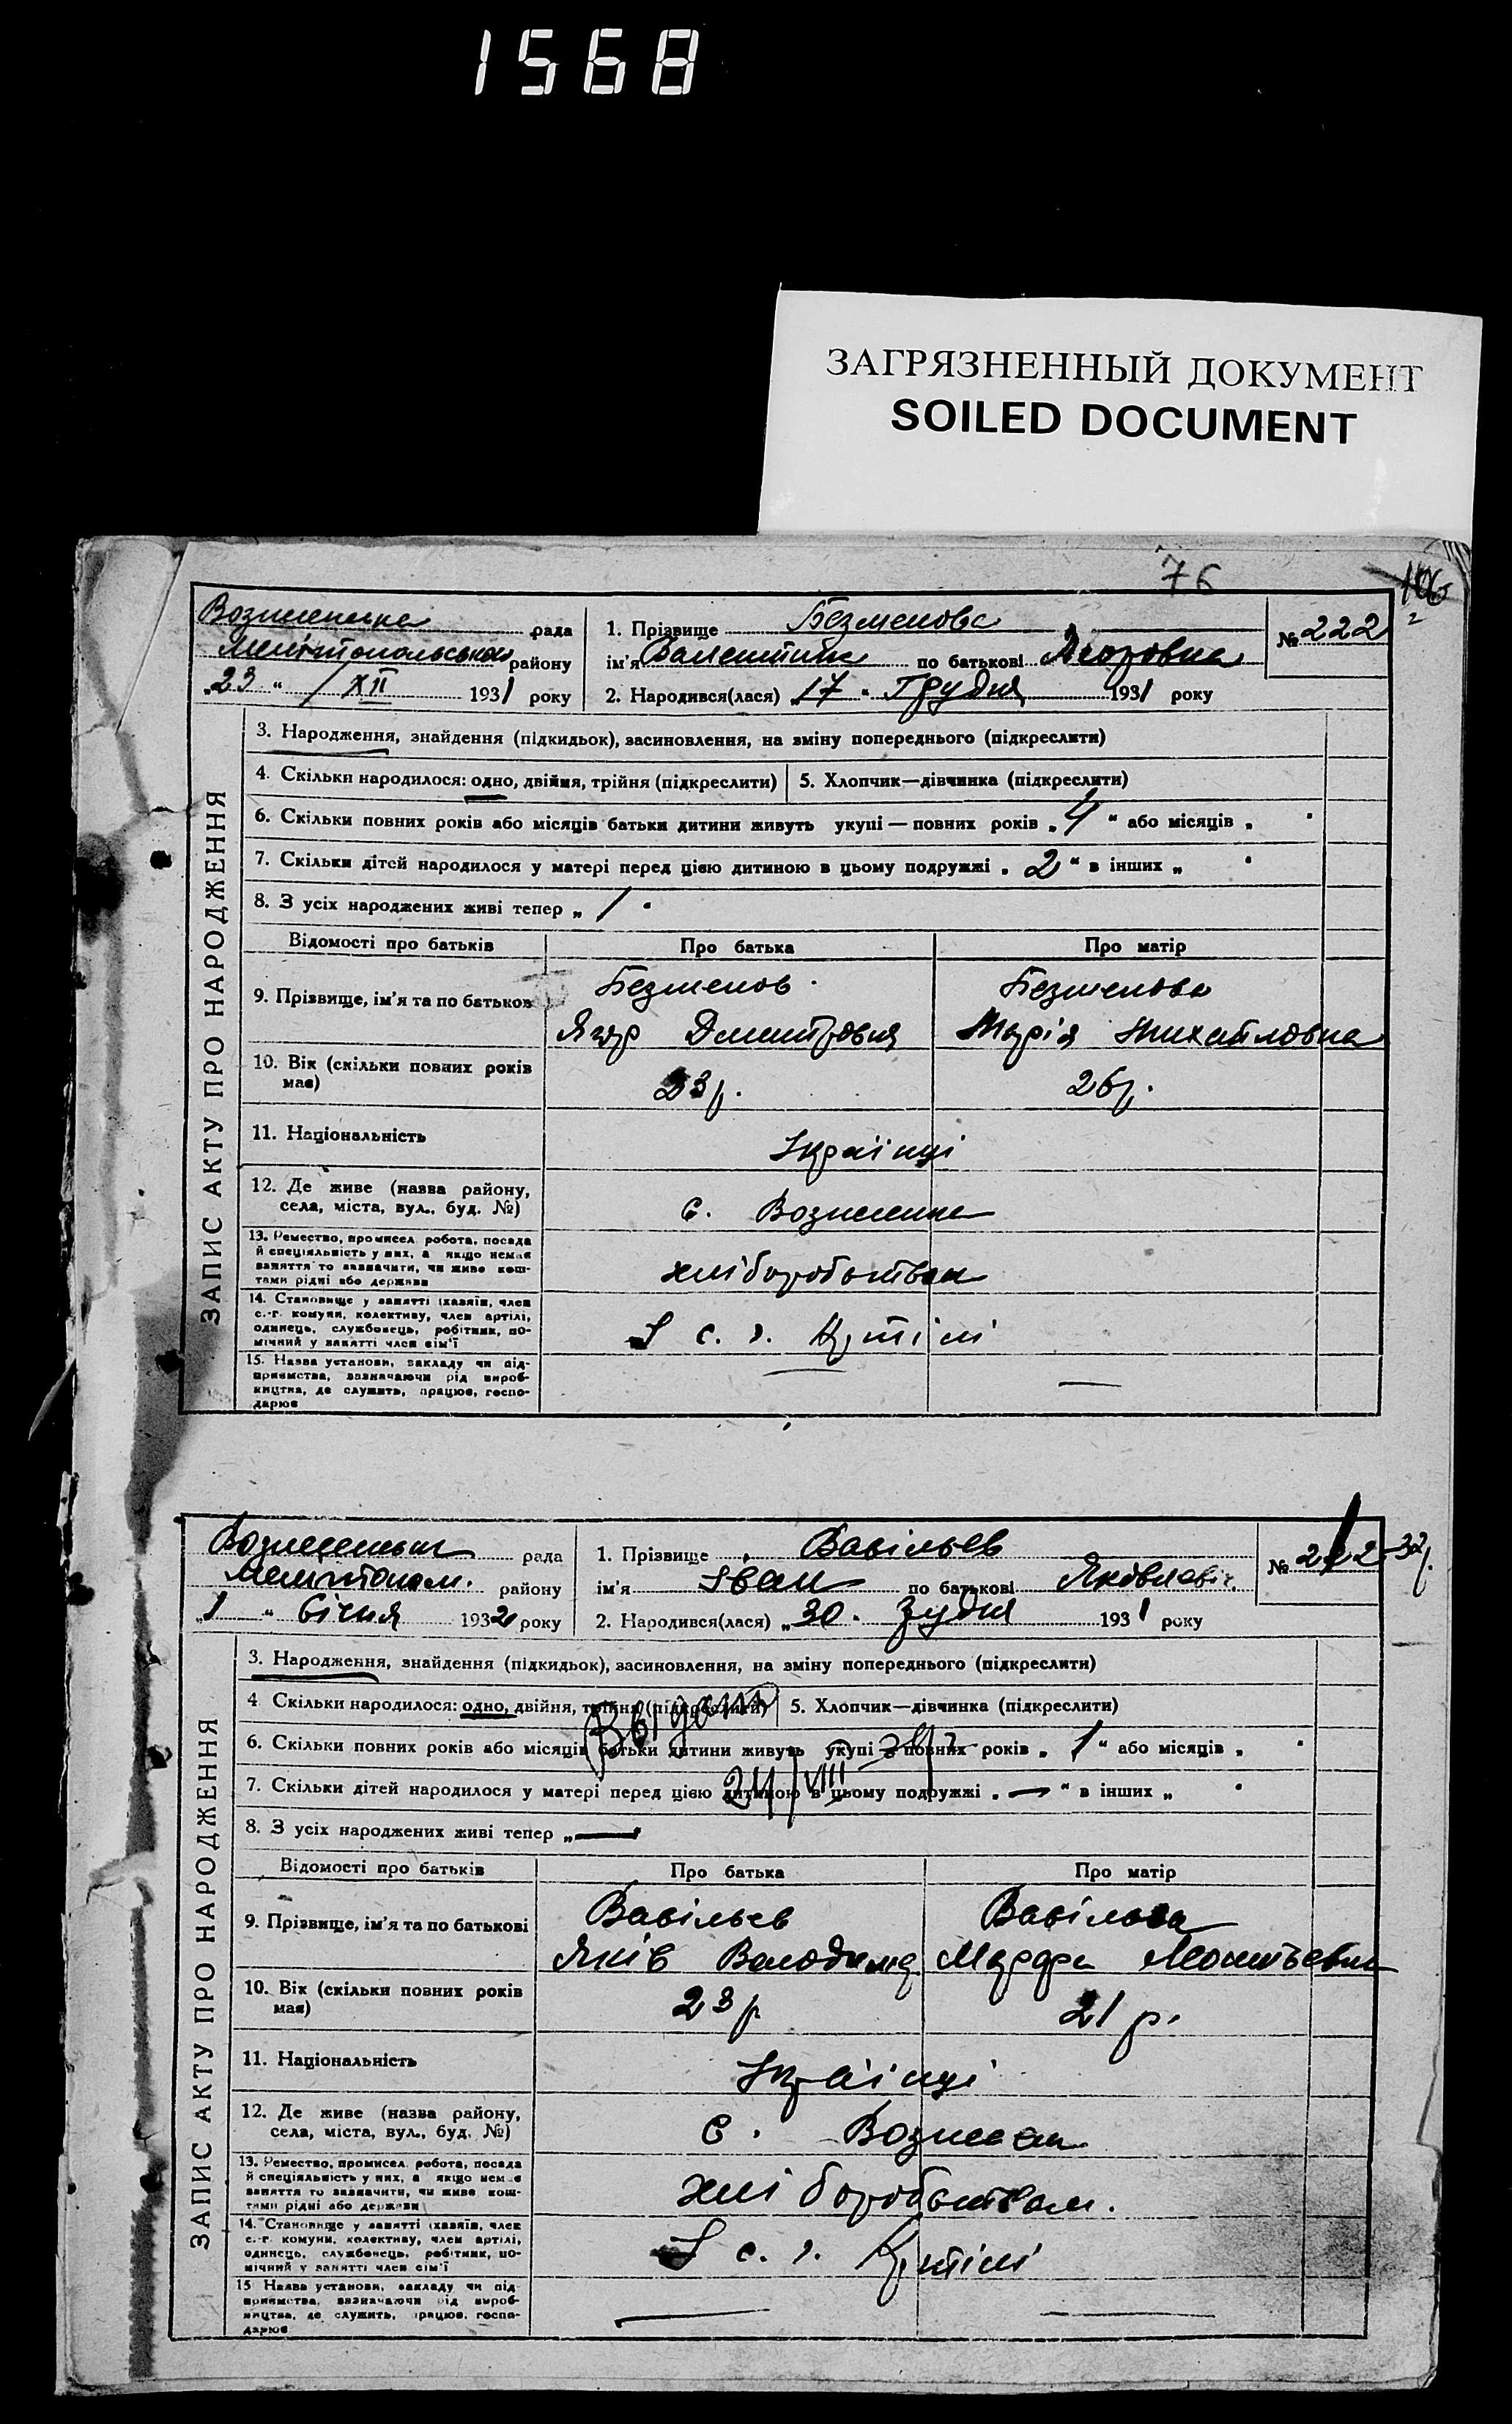 1568
ЗАГРЯЗНЕННЫЙ ДОКУМЕНТ
SOILED DOCUMENT
76
ЗАПИС АКТУ ПРО НАРОДЖЕННЯ
рада
району
„23 “ / XII 1931 року
1. Прізвище Безменова
ім'я Валентина по батькові
2. Народився(лася) „17 “ Грудня 1931 року
№ 222
3. Народження, знайдення (підкидьок), засиновлення, на зміну попереднього (підкреслити)
4. Скільки народилося: одно, двійня, трійня (підкреслити) 5. Хлопчик—дівчинка (підкреслити)
6. Скільки повних років або місяців батьки дитини живуть укупі — повних років „ 4 “ або місяців „
7. Скільки дітей народилося у матері перед цією дитиною в цьому подружжі „ 2 “ в інших „
8. З усіх народжених живі тепер „ 1
Відомості про батьків Про батька Про матір
9. Прізвище, ім'я та по батькові
Безменов Безменова
Марія Михайловна
10. Вік (скільки повних років має) 23 р. 26 р.
11. Національність Українці
12. Де живе (назва району, села, міста, вул., буд. №) с.
13. Ремество, промисел, робота, посада
й спеціяльність у них, а якщо немає
заняття то зазначити, чи живе кош-
тами рідні або держави
хліборобством
14. Становище у занятті (хазяїн, член
с.-г. комуни, колективу, член артілі,
одинець, службовець, робітник, по-
мічний у занятті член сім'ї
с. г. Артілі
15. Назва установи, закладу чи під-
приємства, зазначаючи рід вироб-
ництва, де служить, працює, госпо-
дарює
ЗАПИС АКТУ ПРО НАРОДЖЕННЯ
рада
району
„1 “ Січня 1932 року
1. Прізвище Вавільев
ім'я Іван по батькові
2. Народився(лася) „30 . 1931 року
№
3. Народження, знайдення (підкидьок), засиновлення, на зміну попереднього (підкреслити)
4 Скільки народилося: одно, двійня, трійня (підкреслити) 5. Хлопчик—дівчинка (підкреслити)
6. Скільки повних років або місяців батьки дитини живуть укупі — повних років „ 1 “ або місяців „
7. Скільки дітей народилося у матері перед цією дитиною в цьому подружжі „ — “ в інших „
8. З усіх народжених живі тепер „ —
24/VIII
Відомості про батьків Про батька Про матір
9. Прізвище, ім'я та по батькові
Вавільев
Яків
10. Вік (скільки повних років має) 23 р 21 р.
11. Національність Українці
12. Де живе (назва району, села, міста, вул., буд. №) с.
13. Ремество, промисел, робота, посада
й спеціяльність у них, а якщо немає
заняття то зазначити, чи живе кош-
тами рідні або держави
хліборобством.
14. Становище у занятті (хазяїн, член
с.-г. комуни, колективу, член артілі,
одинець, службовець, робітник, по-
мічний у занятті член сім'ї
с. г. Артілі
15 Назва установи, закладу чи під-
приємства, зазначаючи рід вироб-
ництва, де служить, працює, госпо-
дарює